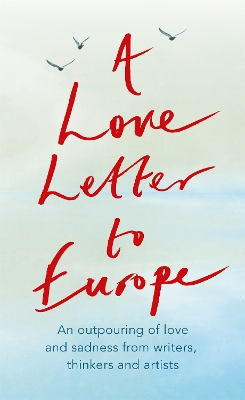 A
Love
Letter
to
Europe
An outpouring of love
and sadness from writers,
thinkers and artists